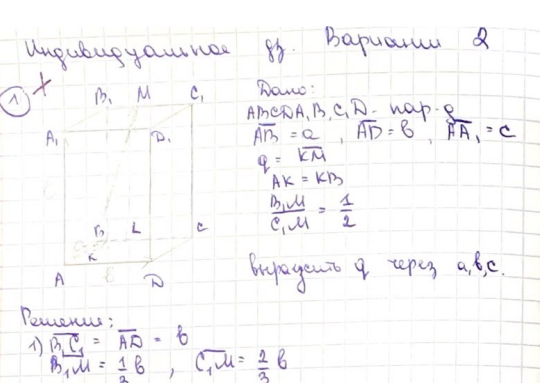 Индивидуальное дз. Вариант 2
1
B₁ M C₁
A₁ D₁
B L C
K
A D
Дано:
ABCDA₁B₁C₁D - пар-д
AB = a, AD = b, AA₁ = c
q = KM
AK = KB
B₁M / C₁M = 1/2
выразить q через a, b, c.
Решение:
1) B₁C₁ = AD = b
B₁M = 1/3 b, C₁M = 2/3 b